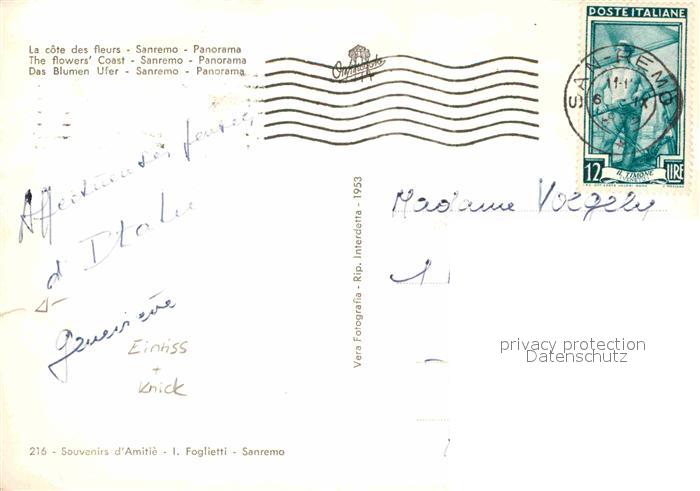 La côte des fleurs - Sanremo - Panorama
The flowers' Coast - Sanremo - Panorama
Das Blumen Ufer - Sanremo - Panorama
POSTE ITALIANE
SAN REMO
IL TIMONE
12 LIRE
Affectueuses pensées
d'Italie
Geneviève
Einriss
+
Knick
Vera Fotografia - Rip. Interdetta - 1953
Madame Voegely
1
privacy protection
Datenschutz
216 - Souvenirs d'Amitiè - I. Foglietti - Sanremo